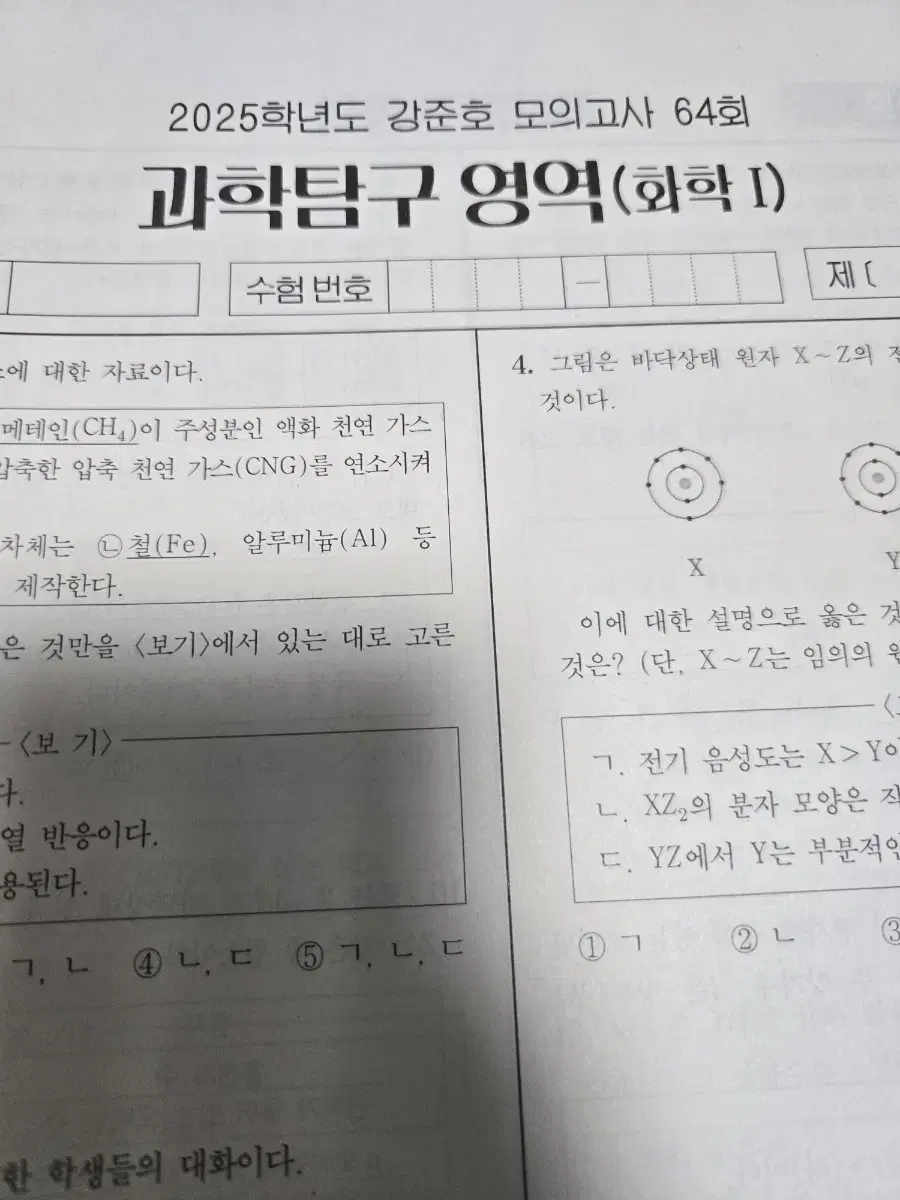 2025학년도 강준호 모의고사 64회
과학탐구 영역(화학 I)
수험 번호 –
제 (
에 대한 자료이다.
메테인(CH₄)이 주성분인 액화 천연 가스
압축한 압축 천연 가스(CNG)를 연소시켜
차체는 ㉡철(Fe), 알루미늄(Al) 등
제작한다.
은 것만을 〈보기〉에서 있는 대로 고른
〈보 기〉
다.
열 반응이다.
용된다.
ㄱ, ㄴ ④ ㄴ, ㄷ ⑤ ㄱ, ㄴ, ㄷ
한 학생들의 대화이다.
4. 그림은 바닥상태 원자 X~Z의
것이다.
X Y
이에 대한 설명으로 옳은
것은? (단, X~Z는 임의의
ㄱ. 전기 음성도는 X>Y이
ㄴ. XZ₂의 분자 모양은
ㄷ. YZ에서 Y는 부분적인
① ㄱ ② ㄴ ③